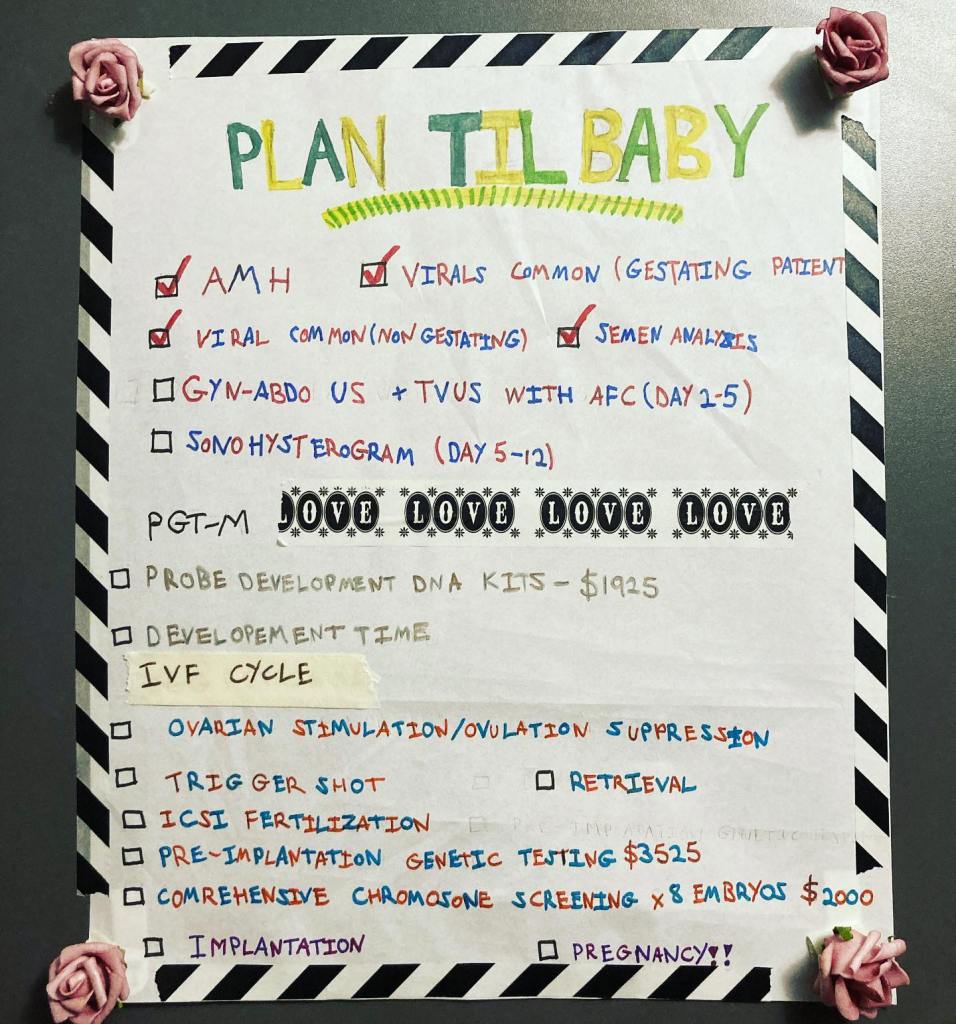 PLAN TIL BABY
AMH VIRALS COMMON (GESTATING PATIENT
VIRAL COMMON (NON GESTATING) SEMEN ANALYSIS
GYN-ABDO US + TVUS WITH AFC (DAY 2-5)
SONOHYSTEROGRAM (DAY 5-12)
PGT-M LOVE LOVE LOVE LOVE
PROBE DEVELOPMENT DNA KITS - $1925
DEVELOPEMENT TIME
IVF CYCLE
OVARIAN STIMULATION/OVULATION SUPPRESSION
TRIGGER SHOT RETRIEVAL
ICSI FERTILIZATION
PRE-IMPLANTATION GENETIC TESTING $3525
COMREHENSIVE CHROMOSONE SCREENING x 8 EMBRYOS $2000
IMPLANTATION PREGNANCY!!